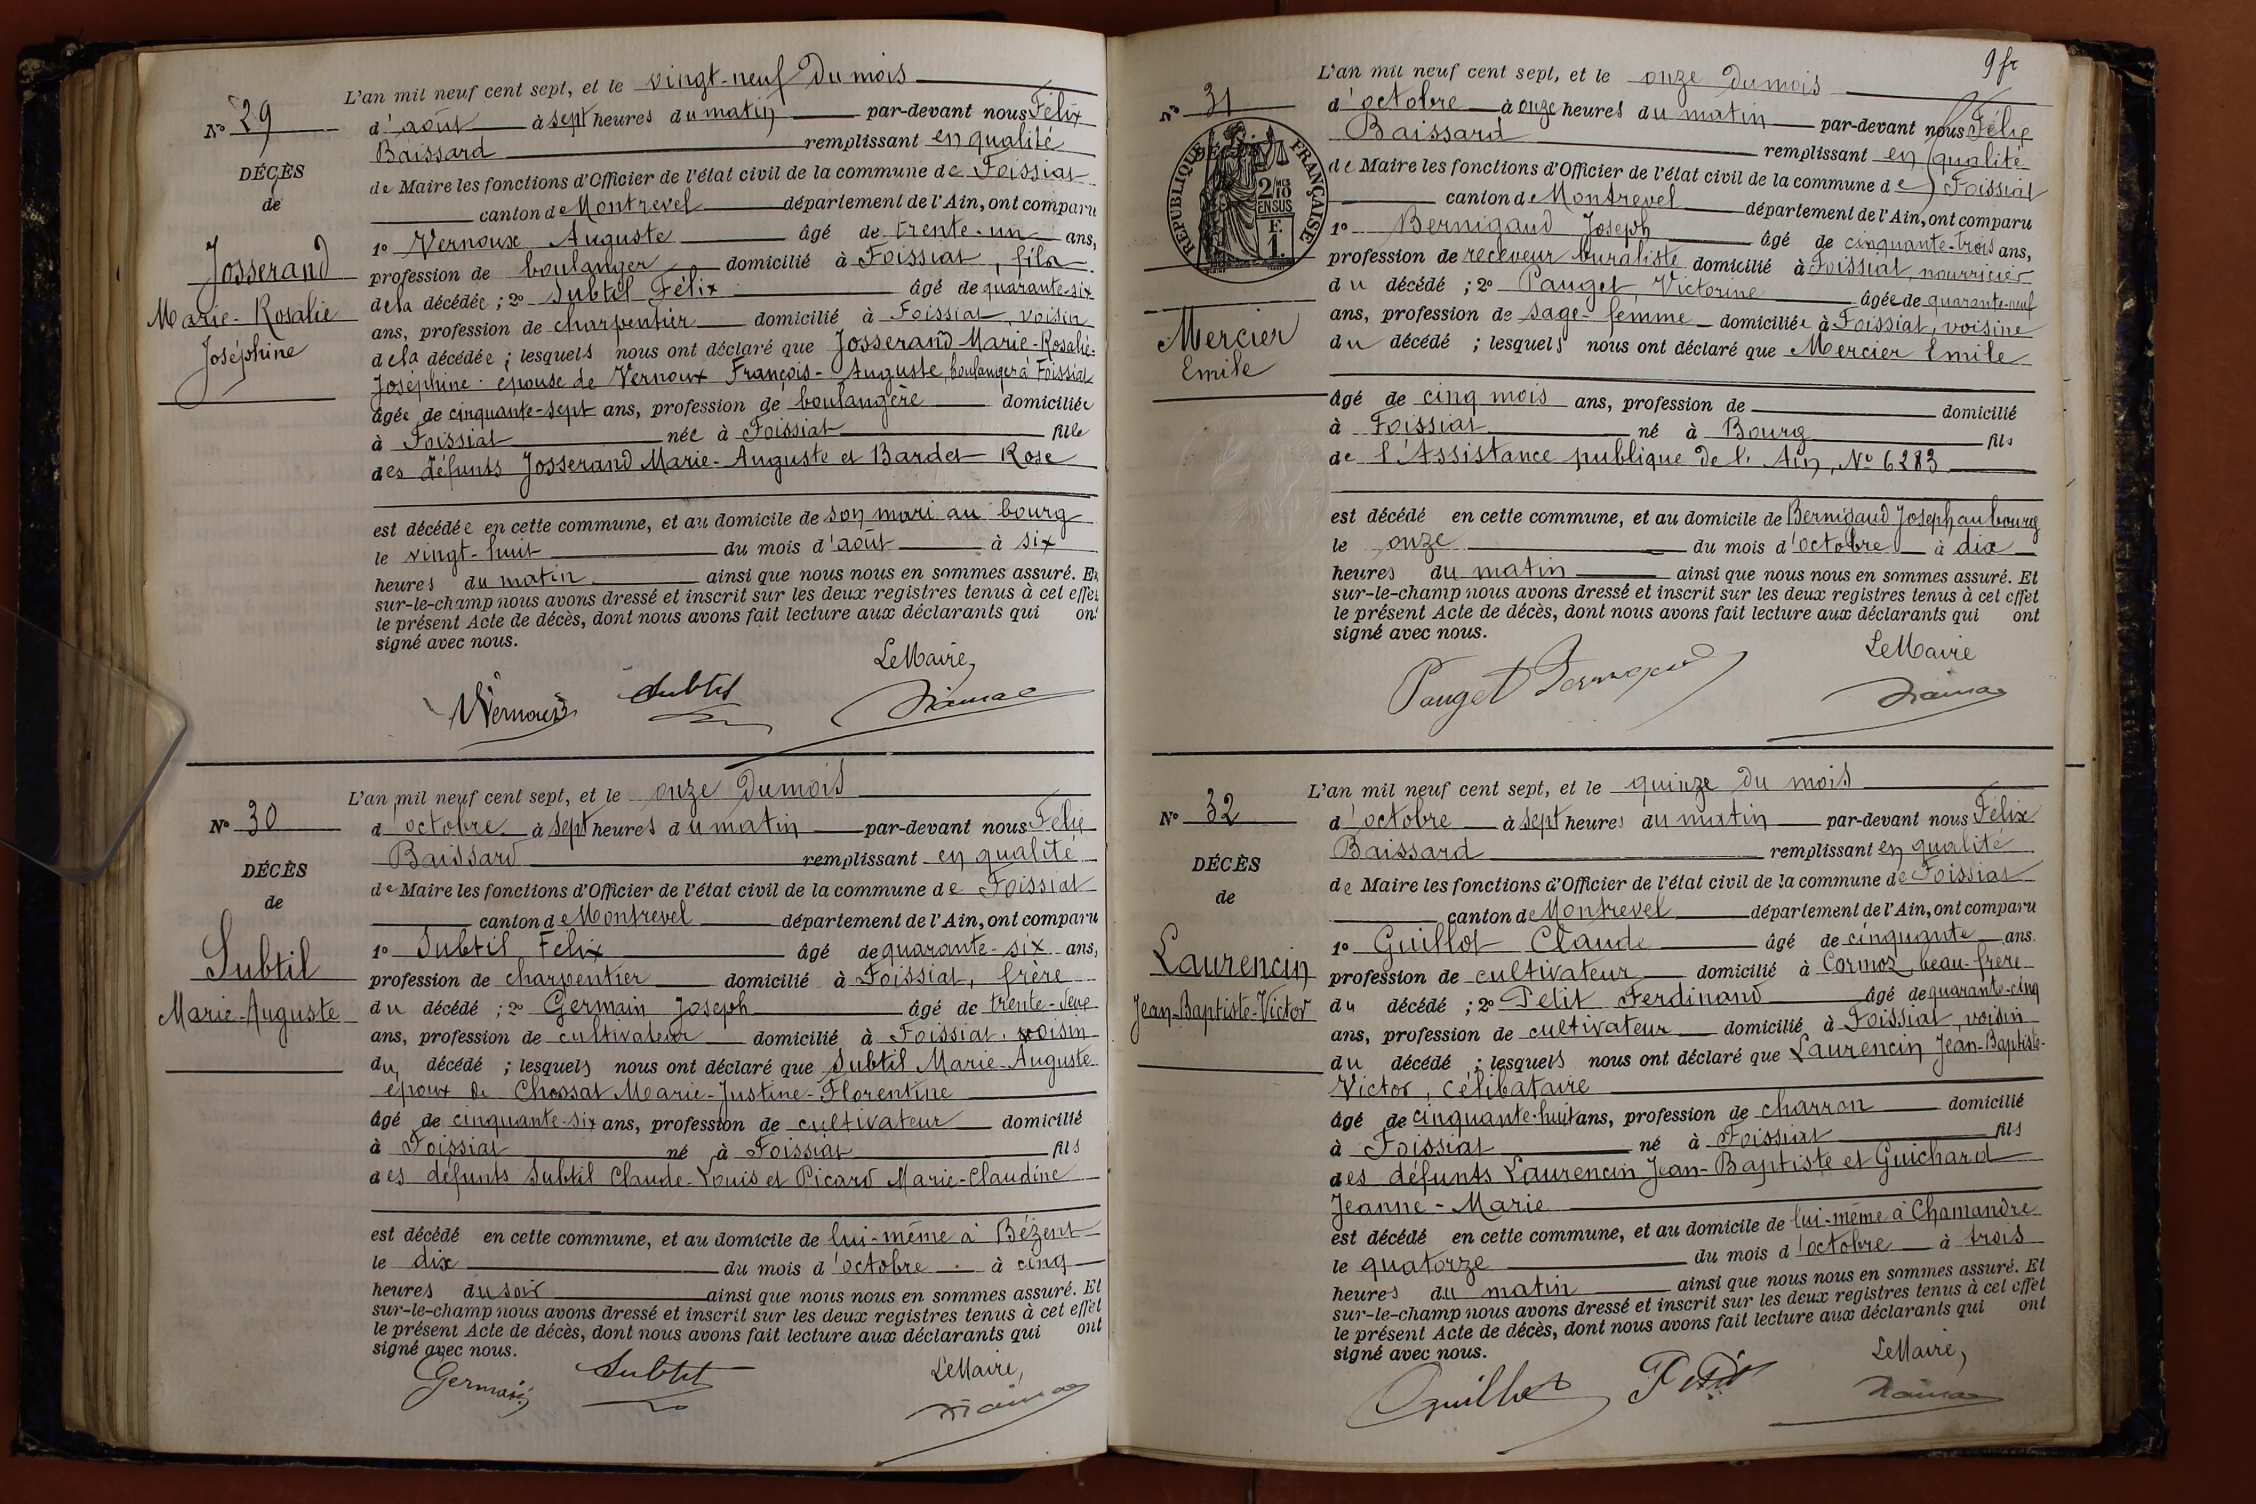 L'an mil neuf cent sept, et le vingt-neuf du mois
N° 29
d'août à sept heures du matin par-devant nous Félix
Baissard remplissant en qualité
DÉCÈS
de Maire les fonctions d'Officier de l'état civil de la commune de Foissiat
de
canton de Montrevel département de l'Ain, ont comparu
1° Vernoux Auguste âgé de trente-un ans,
Josserand
profession de boulanger domicilié à Foissiat, fils
de la décédée ; 2° Subtil Félix âgé de quarante-six
Marie-Rosalie
ans, profession de charpentier domicilié à Foissiat, voisin
Joséphine
de la décédée ; lesquels nous ont déclaré que Josserand Marie-Rosalie-
Joséphine épouse de Vernoux François-Auguste, boulanger à Foissiat
âgée de cinquante-sept ans, profession de boulangère domiciliée
à Foissiat née à Foissiat fille
des défunts Josserand Marie-Auguste et Bardet Rose
est décédée en cette commune, et au domicile de son mari au bourg
le vingt-huit du mois d'août à six
heures du matin ainsi que nous nous en sommes assuré. Et
sur-le-champ nous avons dressé et inscrit sur les deux registres tenus à cet effet
le présent Acte de décès, dont nous avons fait lecture aux déclarants qui ont
signé avec nous.
Le Maire,
Vernoux Subtil
L'an mil neuf cent sept, et le onze du mois
N° 30
d'octobre à sept heures du matin par-devant nous Félix
Baissard remplissant en qualité
DÉCÈS
de Maire les fonctions d'Officier de l'état civil de la commune de Foissiat
de
canton de Montrevel département de l'Ain, ont comparu
1° Subtil Félix âgé de quarante-six ans,
Subtil
profession de charpentier domicilié à Foissiat, frère
du décédé ; 2° Germain Joseph âgé de trente-
Marie-Auguste
ans, profession de cultivateur domicilié à Foissiat, voisin
du décédé ; lesquels nous ont déclaré que Subtil Marie-Auguste
époux de Chossat Marie-Justine-Florentine
âgé de cinquante-six ans, profession de cultivateur domicilié
à Foissiat né à Foissiat fils
des défunts Subtil Claude-Louis et Picard Marie-Claudine
est décédé en cette commune, et au domicile de lui-même à Bézent
le dix du mois d'octobre à cinq
heures du soir ainsi que nous nous en sommes assuré. Et
sur-le-champ nous avons dressé et inscrit sur les deux registres tenus à cet effet
le présent Acte de décès, dont nous avons fait lecture aux déclarants qui ont
signé avec nous.
Le Maire,
Germain Subtil
9 fr
L'an mil neuf cent sept, et le onze du mois
N° 31
d'octobre à onze heures du matin par-devant nous Félix
Baissard remplissant en qualité
DÉCÈS
RÉPUBLIQUE FRANÇAISE
2/10 EN SUS
F. 1.
de Maire les fonctions d'Officier de l'état civil de la commune de Foissiat
canton de Montrevel département de l'Ain, ont comparu
1° Bernigaud Joseph âgé de cinquante-trois ans,
profession de receveur buraliste domicilié à Foissiat, nourricier
du décédé ; 2° Pauget, Victorine âgée de quarante-neuf
Mercier
ans, profession de sage-femme domiciliée à Foissiat, voisine
du décédé ; lesquels nous ont déclaré que Mercier Emile
Emile
âgé de cinq mois ans, profession de domicilié
à Foissiat né à Bourg fils
de l'Assistance publique de l'Ain, N° 6283
est décédé en cette commune, et au domicile de Bernigaud Joseph au bourg
le onze du mois d'octobre à dix
heures du matin ainsi que nous nous en sommes assuré. Et
sur-le-champ nous avons dressé et inscrit sur les deux registres tenus à cet effet
le présent Acte de décès, dont nous avons fait lecture aux déclarants qui ont
signé avec nous.
Le Maire
Pauget
L'an mil neuf cent sept, et le quinze du mois
N° 32
d'octobre à sept heures du matin par-devant nous Félix
Baissard remplissant en qualité
DÉCÈS
de Maire les fonctions d'Officier de l'état civil de la commune de Foissiat
de
canton de Montrevel département de l'Ain, ont comparu
1° Guillot Claude âgé de cinquante ans.
Laurencin
profession de cultivateur domicilié à Cormoz, beau-frère
Jean-Baptiste-Victor
du décédé ; 2° Petit Ferdinand âgé de quarante-cinq
ans, profession de cultivateur domicilié à Foissiat, voisin
du décédé ; lesquels nous ont déclaré que Laurencin Jean-Baptiste-
Victor, célibataire
âgé de cinquante-huit ans, profession de charron domicilié
à Foissiat né à Foissiat fils
des défunts Laurencin Jean-Baptiste et Guichard
Jeanne-Marie
est décédé en cette commune, et au domicile de lui-même à Chamandre
le quatorze du mois d'octobre à trois
heures du matin ainsi que nous nous en sommes assuré. Et
sur-le-champ nous avons dressé et inscrit sur les deux registres tenus à cet effet
le présent Acte de décès, dont nous avons fait lecture aux déclarants qui ont
signé avec nous.
Le Maire,
Guillot F Petit